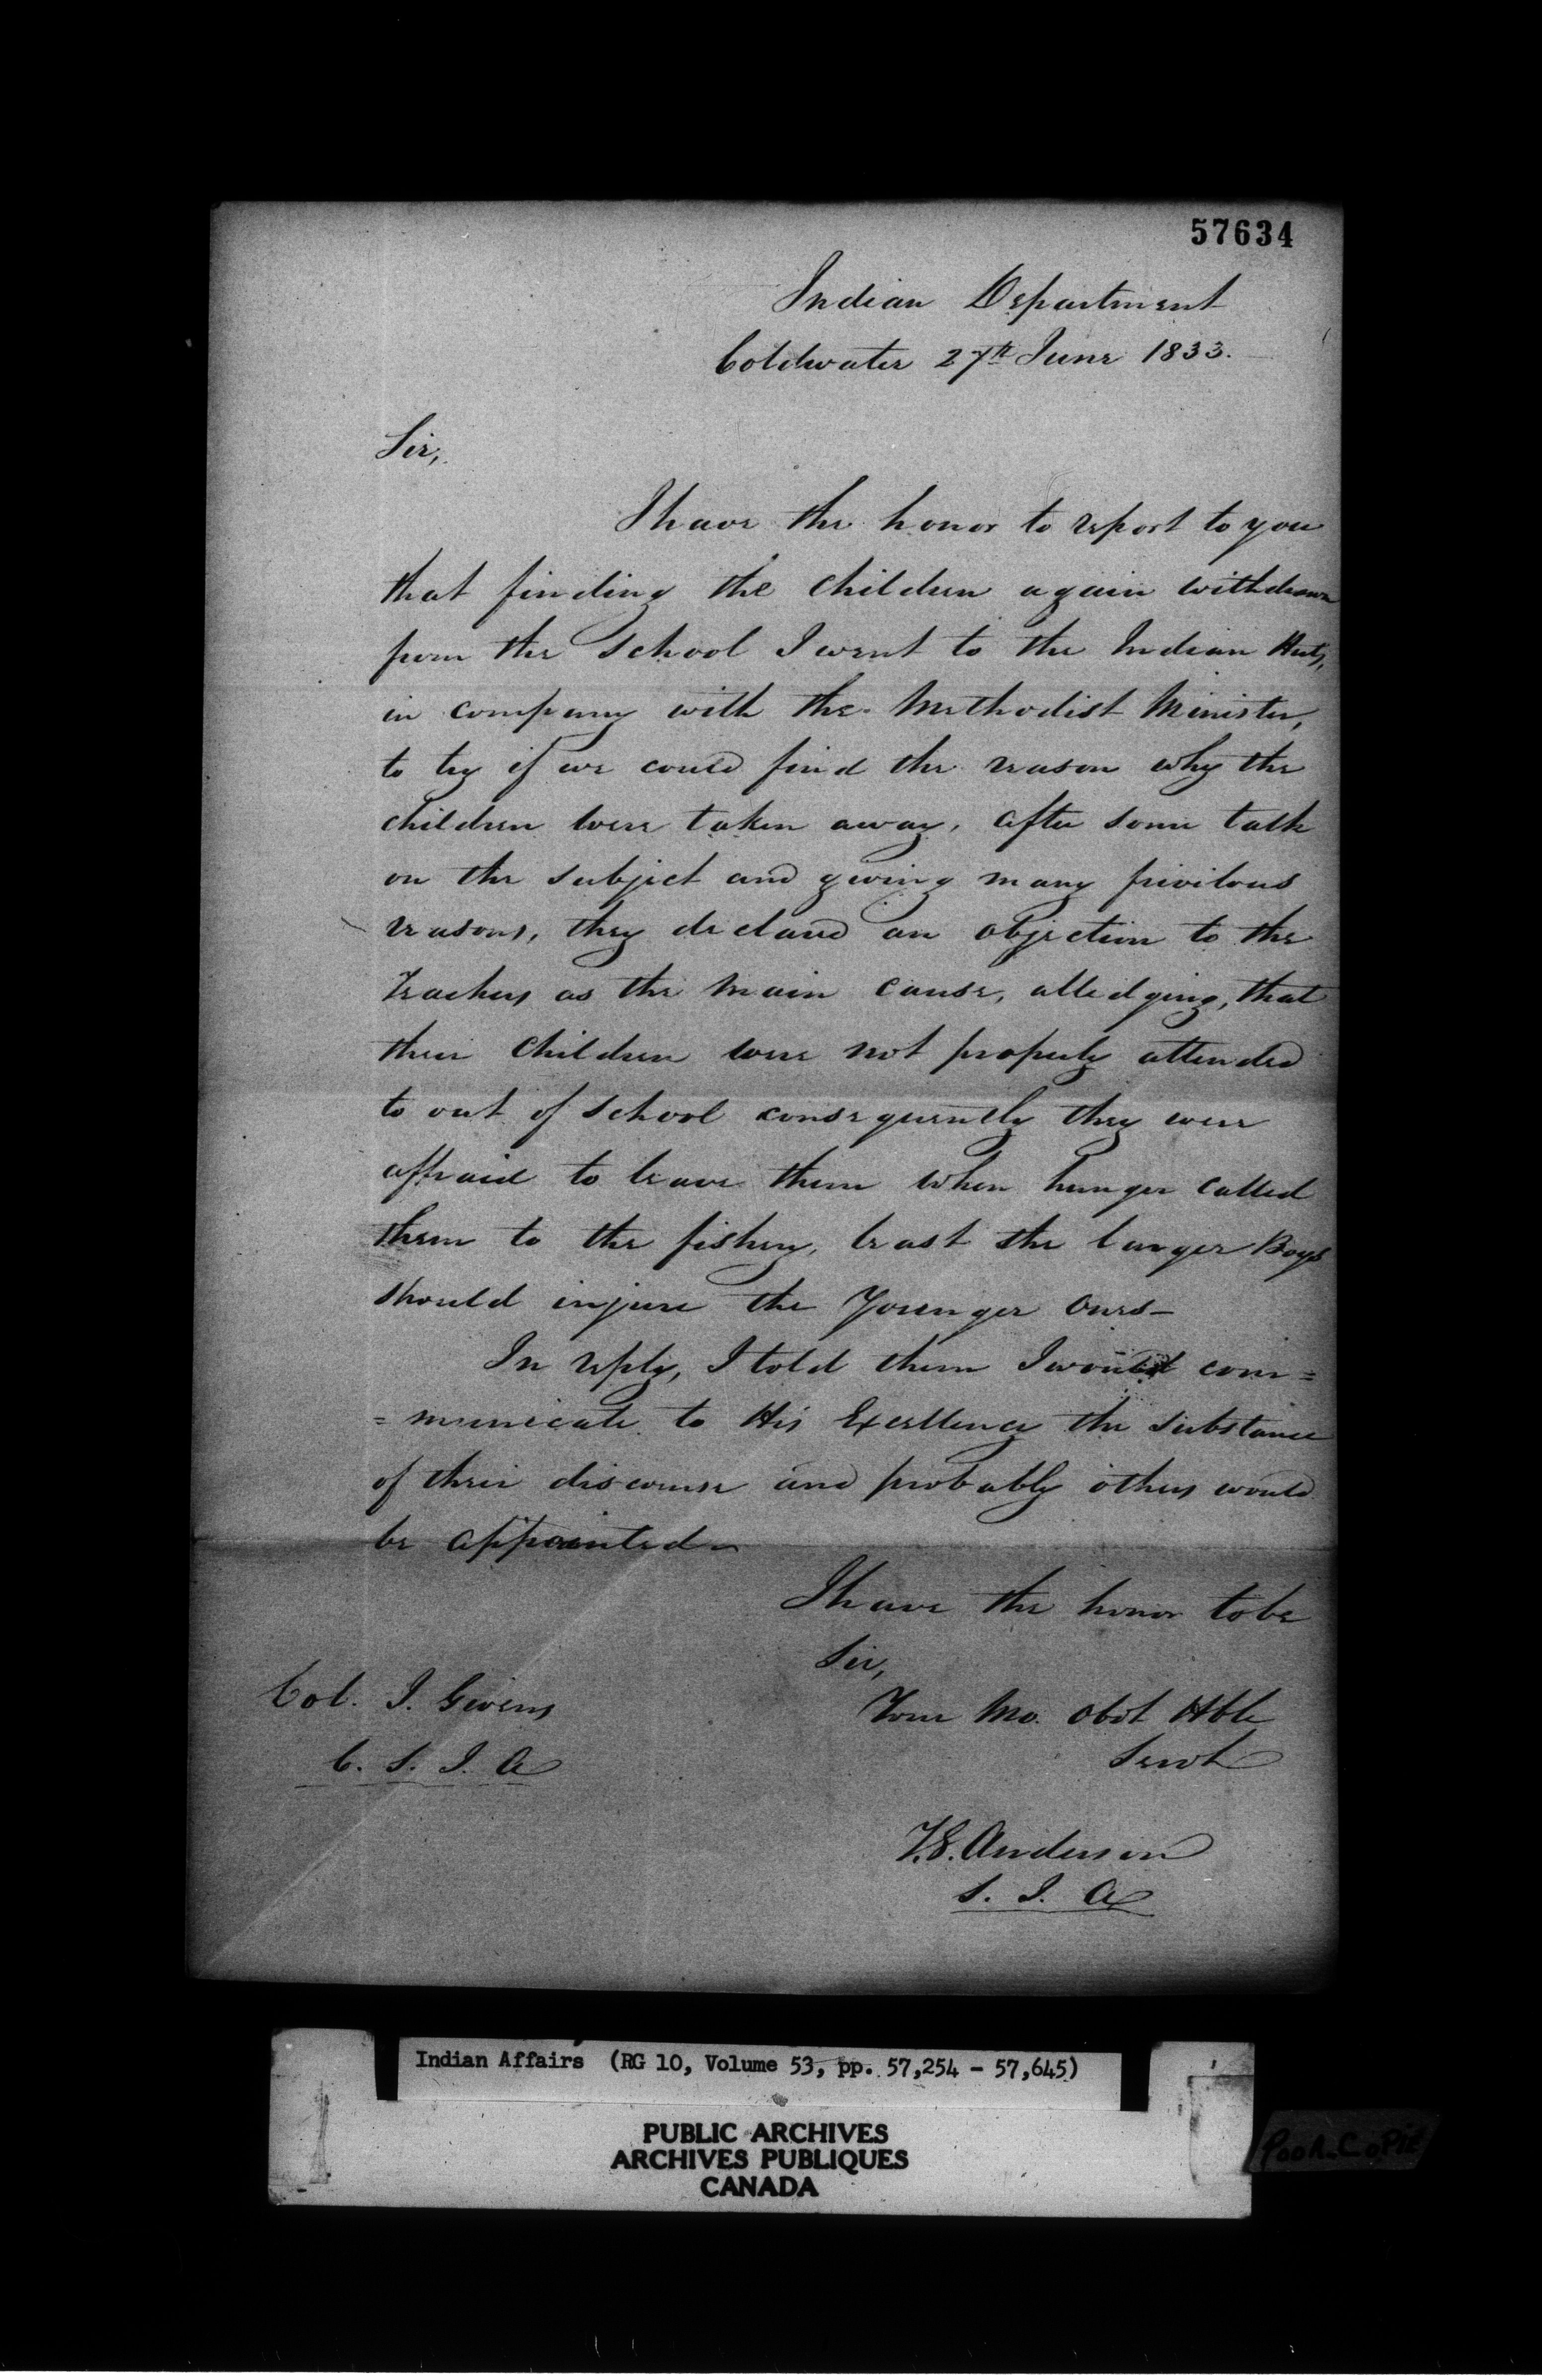 57634
Indian Department
Coldwater 27th June 1833.
Sir,
I have the honor to report to you
that finding the children again withdrawn
from the School I went to the Indian Huts,
in company with the Methodist Minister,
to try if we could find the reason why the
children were taken away, after some talk
on the subject and giving many frivilous
reasons, they declared an objection to the
Teachers as the main cause, alledging, that
their children were not properly attended
to out of School consequently they were
affraid to leave them when hunger called
them to the fishery, least the larger Boys
should injure the Younger ones—
In reply, I told them I would com=
=municate to His Excellency the substance
of their discourse and probably others would
be appointed—
I have the honor to be
Sir,
Your Mo. Obdt Hble
Servt
Col. J. Givens
C. S. I. A
T.G. Anderson
S. I. A
Indian Affairs (RG 10, Volume 53, pp. 57,254 - 57,645)
PUBLIC ARCHIVES
ARCHIVES PUBLIQUES
CANADA
Poor Copie